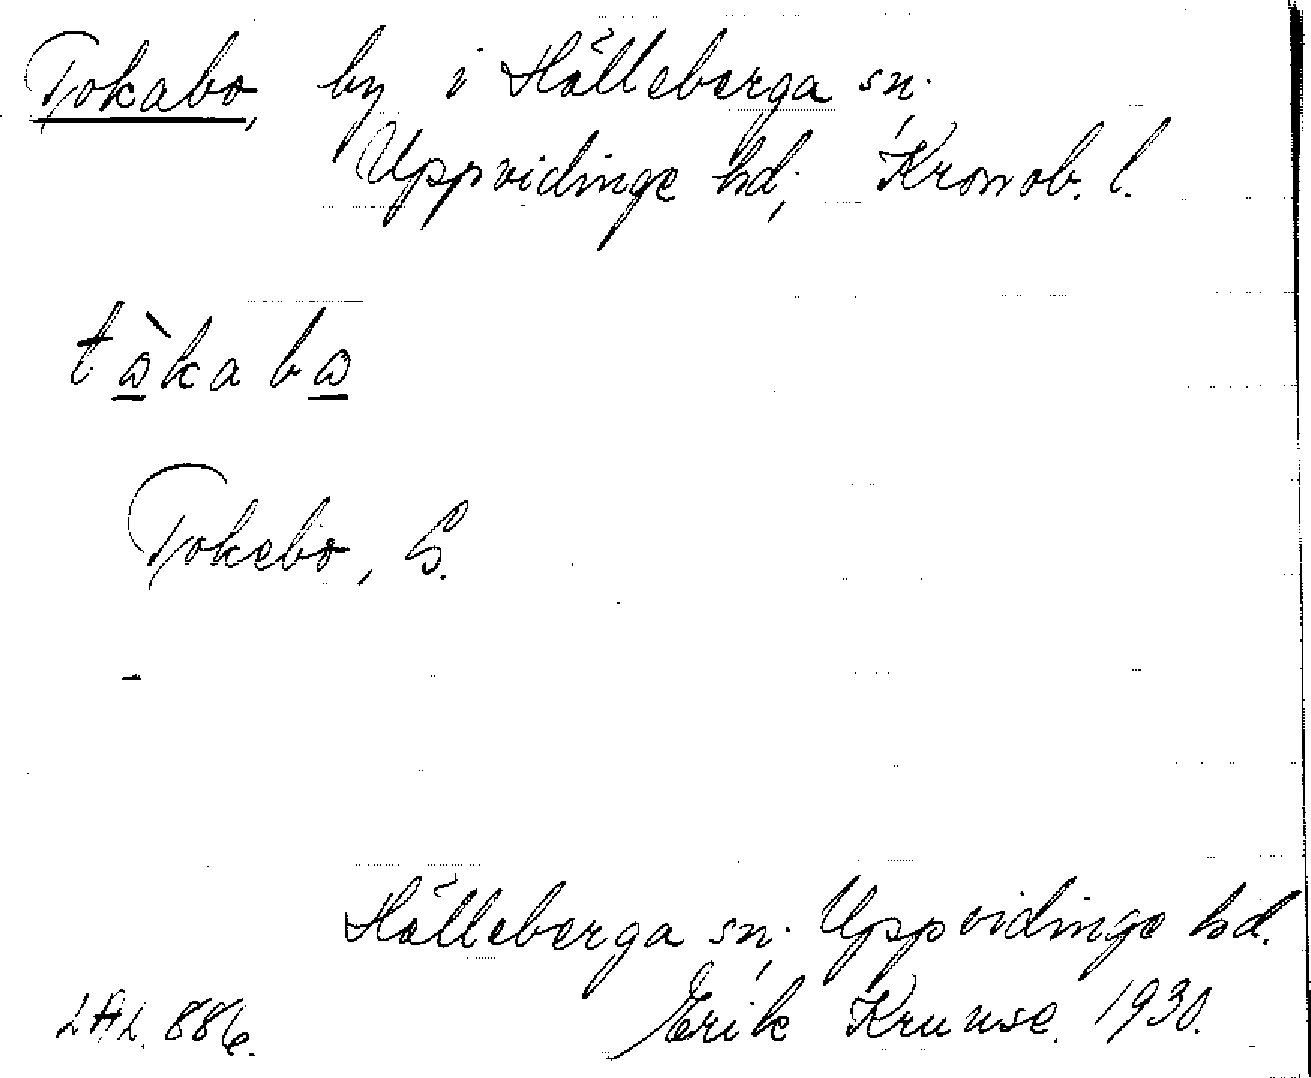 Tokabo, by i Hälleberga sn.
Uppvidinge hd, Kronob. l.
Tokebo, S.
Hälleberga sn. Uppvidinge hd.
LAL. 886. Erik Kruuse. 1930.